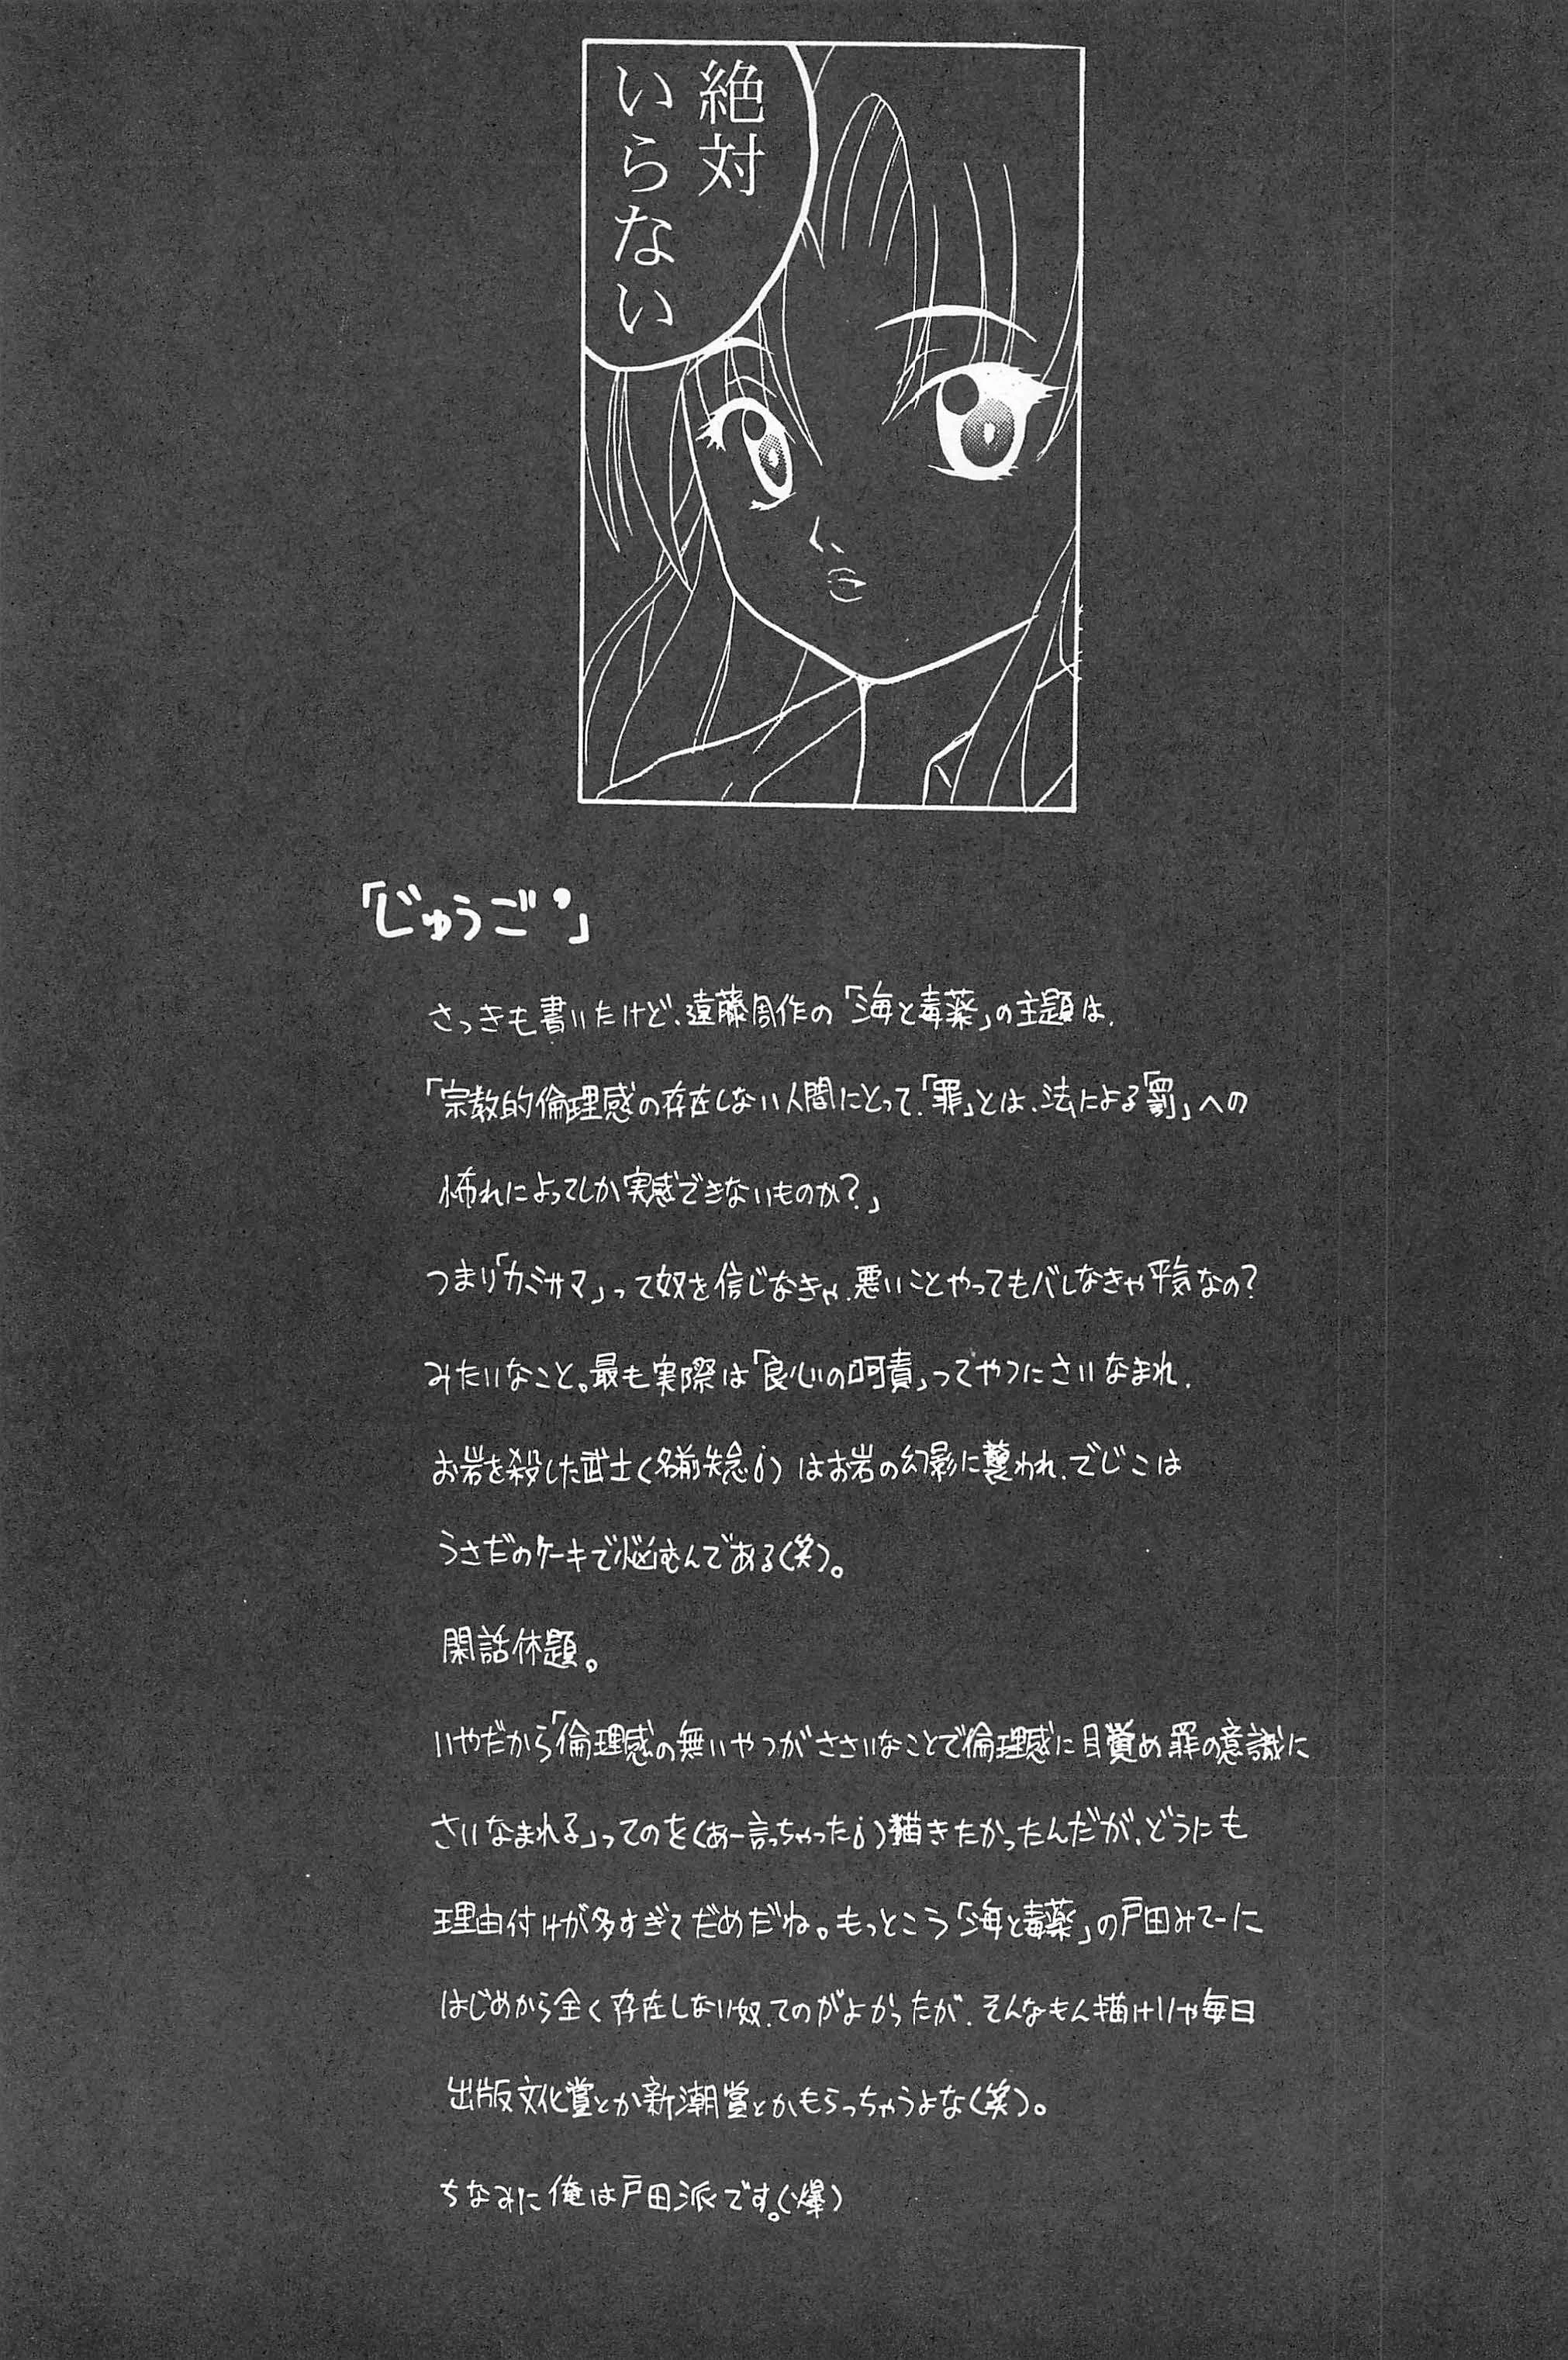 絶対
いらない
「じゅうご」
さっきも書いたけど、遠藤周作の「海と毒薬」の主題は、
「宗教的倫理感の存在しない人間にとって、「罪」とは、法による「罰」への
怖れによってしか実感できないものか?」
つまり「カミサマ」って奴を信じなきゃ、悪いことやってもバレなきゃ平気なの?
みたいなこと。最も実際は「良心の呵責」ってやつにさいなまれ、
お岩を殺した武士(名前失念i)はお岩の幻影に襲われ、でじこは
うさだのケーキで悩むんである(笑)。
閑話休題。
いやだから「倫理感の無いやつがささいなことで倫理感に目覚め罪の意識に
さいなまれる」ってのを(あー言っちゃったi)描きたかったんだが、どうにも
理由付けが多すぎてだめだね。もっとこう「海と毒薬」の戸田みてーに
はじめから全く存在しない奴、てのがよかったが、そんなもん描けりゃ毎日
出版文化賞とか新潮賞とかもらっちゃうよな(笑)。
ちなみに俺は戸田派です。(爆)